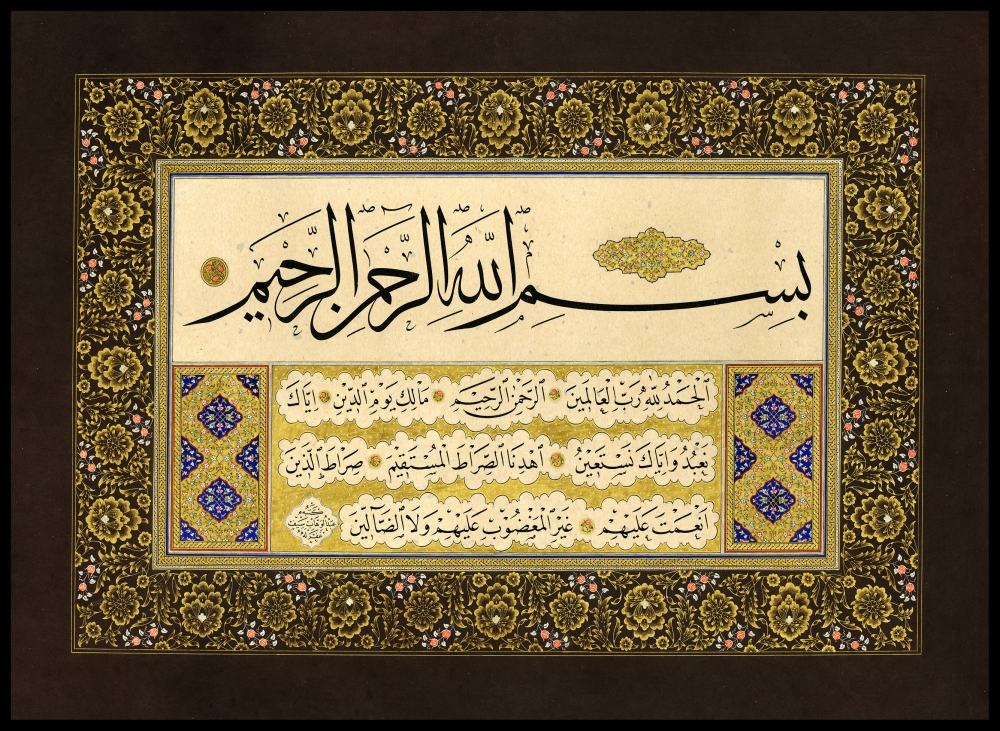 بِسْمِ اللّٰهِ الرَّحْمٰنِ الرَّحِيمِ
اَلْحَمْدُ لِلّٰهِ رَبِّ الْعَالَمِينَ الرَّحْمٰنِ الرَّحِيمِ مَالِكِ يَوْمِ الدِّينِ اِيَّاكَ
نَعْبُدُ وَاِيَّاكَ نَسْتَعِينُ اِهْدِنَا الصِّرَاطَ الْمُسْتَقِيمَ صِرَاطَ الَّذِينَ
اَنْعَمْتَ عَلَيْهِمْ غَيْرِ الْمَغْضُوبِ عَلَيْهِمْ وَلَا الضَّالِّينَ